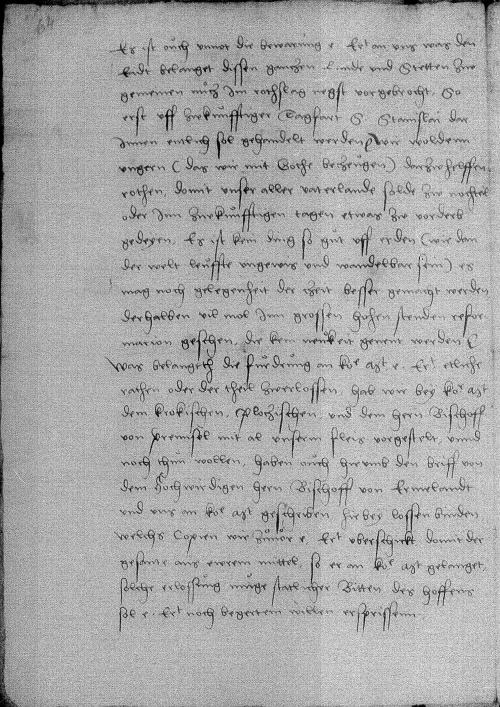 64
Es ist auch unnot die bewarung e. Erl an uns was den
Eidt belanget dissen ganczen Lande und Stetten zw
gemeinen nucz Im rothslag negst vorgebrocht, So
erst uff zukunfftiger Tagfart S Stanislai dar
Innen entlich sol gehandelt werden, Wir woldenn
ungern (das wir mit Gothe beczeugen) darzw helffen
rothen, domit unser aller vaterlande solde zw nochteil
oder Inn zukunfftigen tagen etwas zw vorderb
gedeyen, Es ist kein ding so gut uff erden (wie dan
der welt leuffte ungewis und wandelbar sein) es
mag noch gelegenheit der zeit besser gemacht werden
derhalben vil mol Inn grossen hohen stenden refor
mation geschen, die kein neukeit genent werden (
Was belangeth die fuderung an ko mt e. Erl etliche
rathen oder der theil zuerlossen, hab wir bey ko mt
dem krokischen, Ploczischen, und dem hern Bischoff
von Premisel mit al unserm fleis vorgestelt, unnd
noch thun wollen, haben auch hirumb den briff von
dem Hochwirdigen hern Bischoff von Ermelandt
und uns an ko mt geschriben hir bey lossen binden
welichs Copien wir zuvor e. Erl uberschickt domit der
gesante aus ewerem mittel, so er an ko mt gelanget,
soliche erlossung muge statlicher Bitten des hoffens
sol e. Erl noch begertem willen ersprissenn.